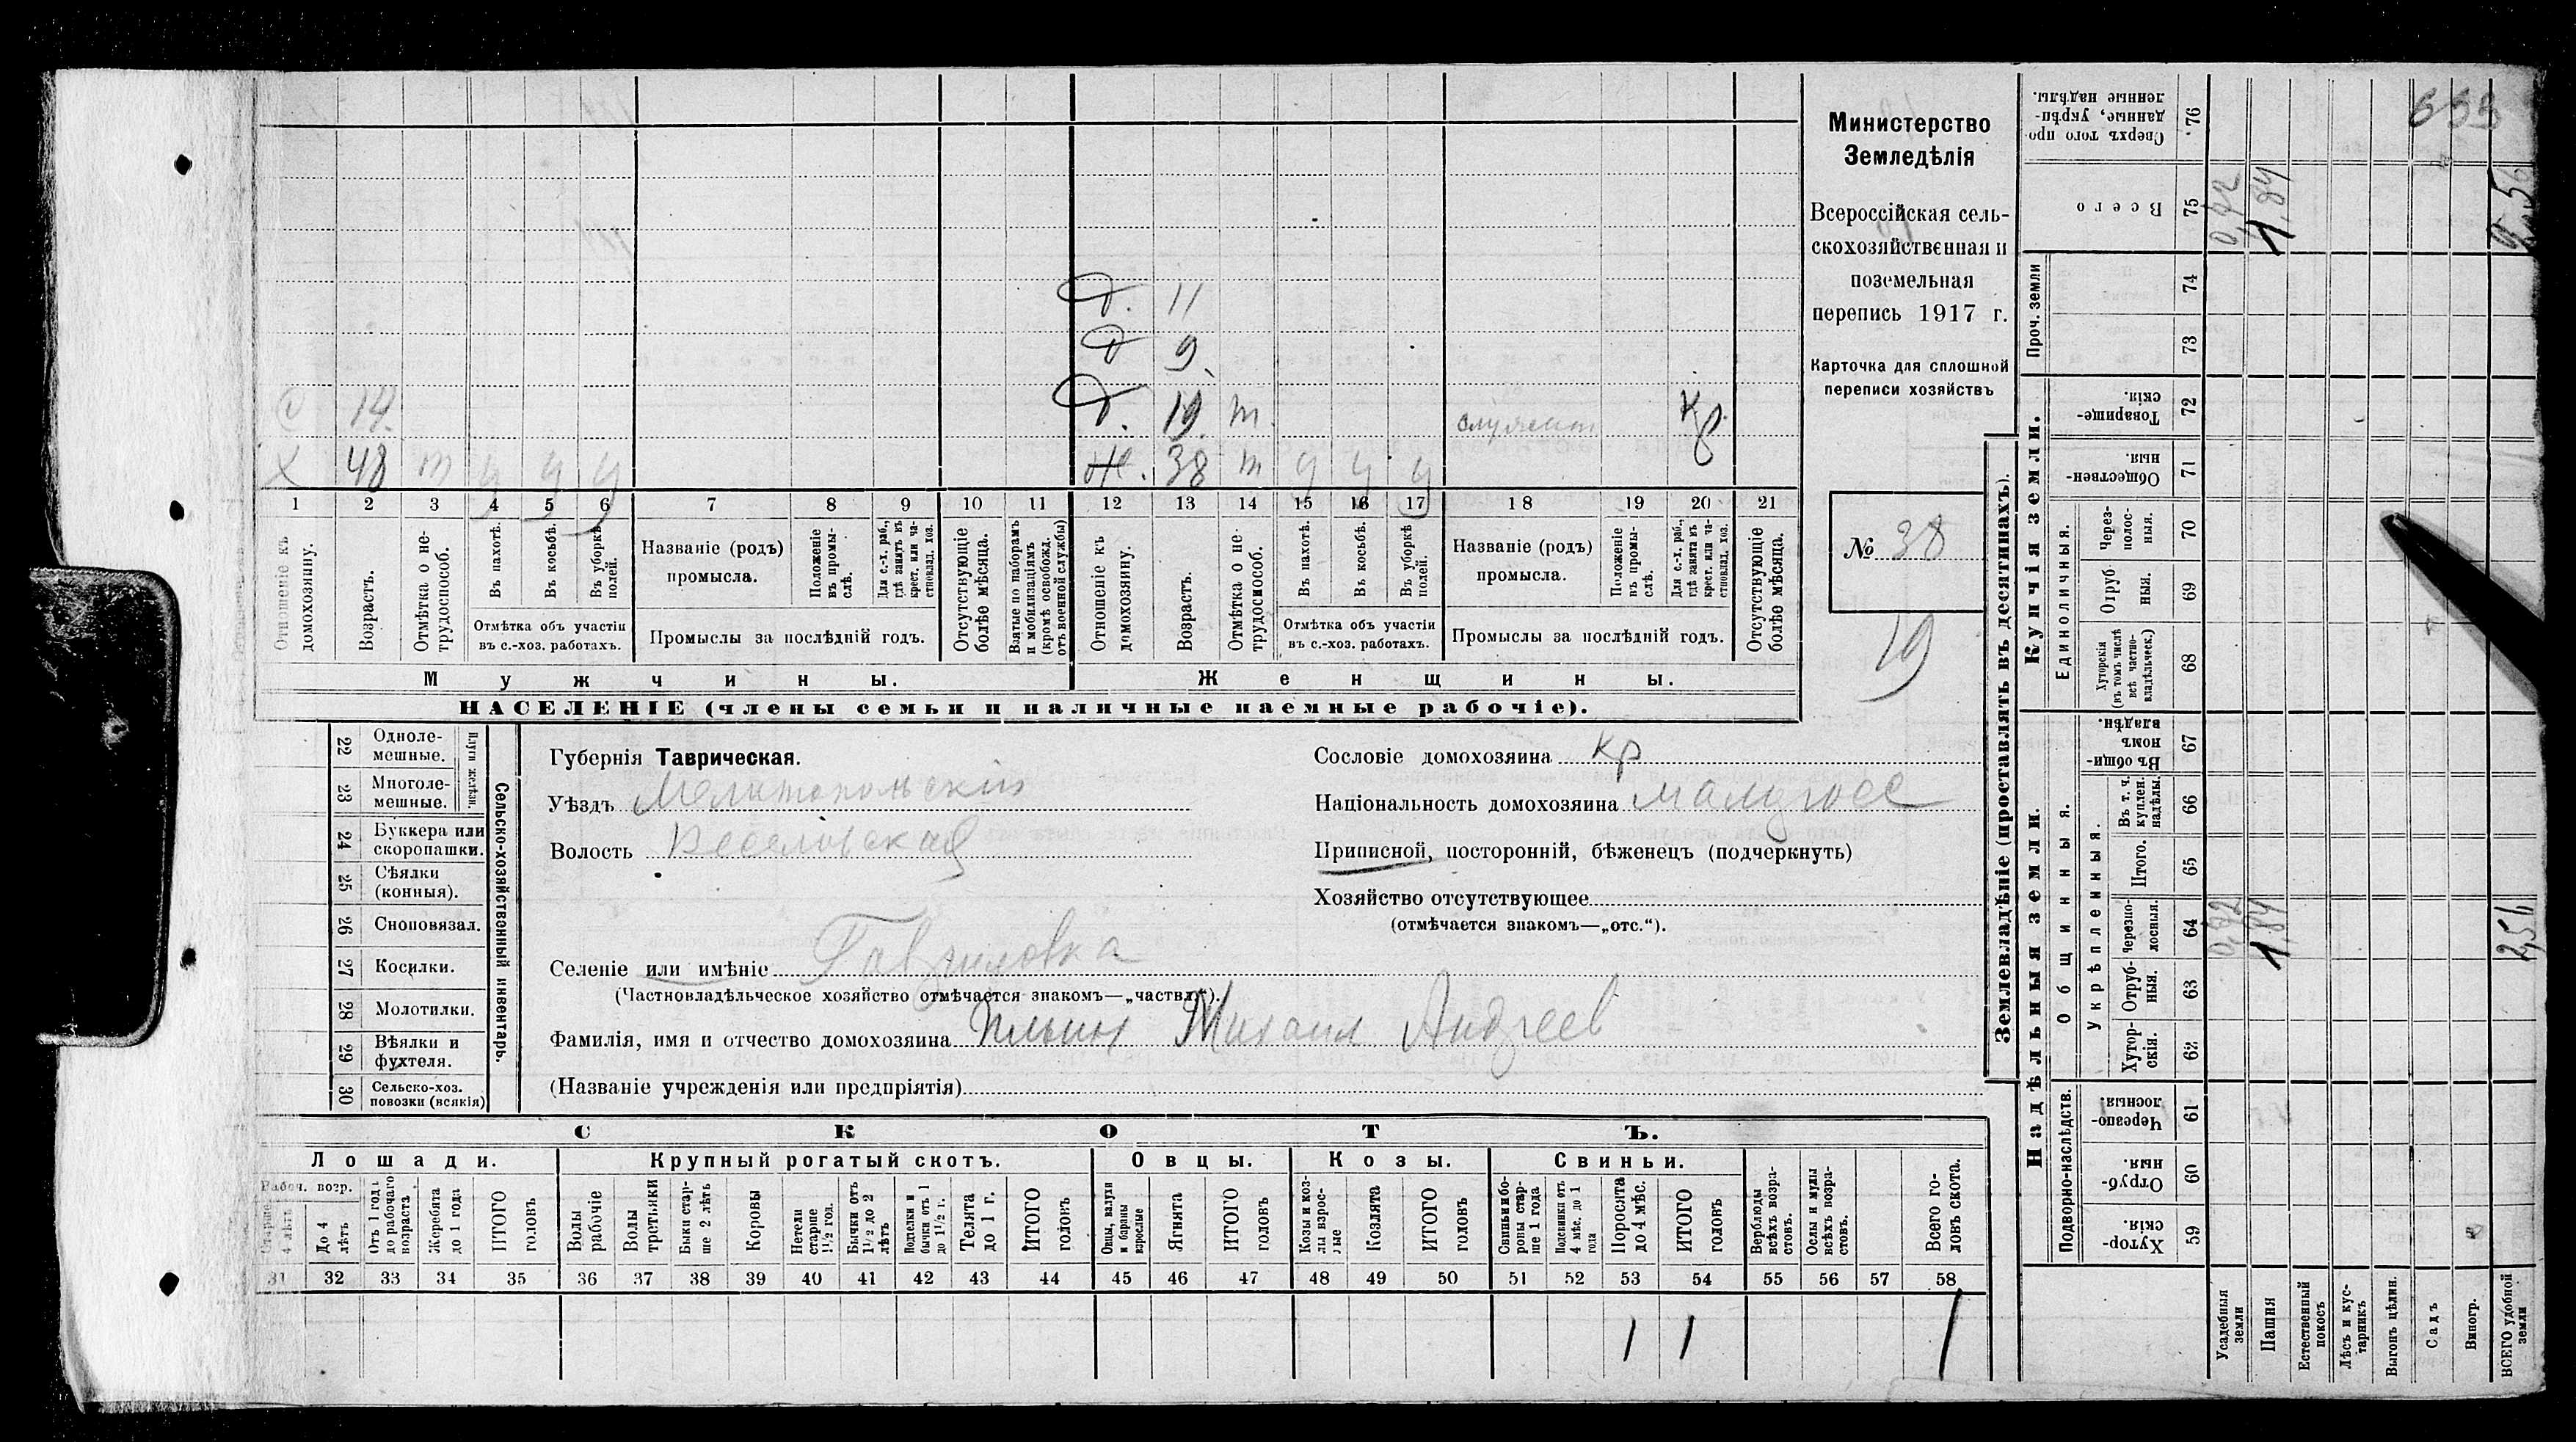 Министерство
Земледѣлія
Всероссійская сель-
скохозяйственная и
поземельная
перепись 1917 г.
Карточка для сплошной
переписи хозяйствъ
№ 38
19
Д. 11
Д 9
С 14. Д. 19. т. служит кр.
Х 48 т у у у Ж. 38 т у у у
1 2 3 4 5 6 7 8 9 10 11 12 13 14 15 16 17 18 19 20 21
Отношеніе къ домохозяину.
Возрастъ.
Отмѣтка о не-трудоспособ.
Въ пахотѣ.
Въ косьбѣ.
Въ уборкѣ полей.
Отмѣтка объ участіи
въ с.-хоз. работахъ.
Названіе (родъ)
промысла.
Положеніе въ промы-слѣ.
Для с.-х. раб., гдѣ занятъ въ крест. или ча-стновлад. хоз.
Промыслы за послѣдній годъ.
Отсутствующіе болѣе мѣсяца.
Взятые по наборамъ и мобилизаціямъ (кромѣ освобожд. отъ военной службы)
Отношеніе къ домохозяину.
Возрастъ.
Отмѣтка о не-трудоспособ.
Въ пахотѣ.
Въ косьбѣ.
Въ уборкѣ полей.
Отмѣтка объ участіи
въ с.-хоз. работахъ.
Названіе (родъ)
промысла.
Положеніе въ промы-слѣ.
Для с.-х. раб., гдѣ занята въ крест. или ча-стновлад. хоз.
Промыслы за послѣдній годъ.
Отсутствующіе болѣе мѣсяца.
Мужчины. Женщины.
НАСЕЛЕНІЕ (члены семьи и наличные наемные рабочіе).
22 Одноле-мешные.
23 Многоле-мешные.
Плуги желѣзн.
24 Буккера или скоропашки.
25 Сѣялки (конныя).
26 Сноповязал.
27 Косилки.
28 Молотилки.
29 Вѣялки и фухтеля.
30 Сельско-хоз. повозки (всякія)
Сельско-хозяйственный инвентарь.
Губернія Таврическая.
Уѣздъ Мелитопольскій
Волость Веселовская
Селеніе или имѣніе Гавриловка
(Частновладѣльческое хозяйство отмѣчается знакомъ—„частвл.“).
Фамилія, имя и отчество домохозяина Ильин Михаил Андреев
(Названіе учрежденія или предпріятія)
Сословіе домохозяина кр
Національность домохозяина малоросс
Приписной, посторонній, бѣженецъ (подчеркнуть)
Хозяйство отсутствующее
(отмѣчается знакомъ—„отс.“).
СКОТЪ.
Лошади. Крупный рогатый скотъ. Овцы. Козы. Свиньи.
Рабоч. возр.
Старше 4 лѣтъ
До 4 лѣтъ
Отъ 1 года до рабочаго возраста
Жеребята до 1 года
ИТОГО головъ
Волы рабочіе
Волы третьяки
Быки стар-ше 2 лѣтъ
Коровы
Нетели старше 1½ год.
Бычки отъ 1½ до 2 лѣтъ
Подтелки и бычки отъ 1 до 1½ г.
Телята до 1 г.
ИТОГО головъ
Овцы, валухи и бараны взрослые
Ягнята
ИТОГО головъ
Козы и коз-лы взрос-лые
Козлята
ИТОГО головъ
Свиньи и бо-ровы стар-ше 1 года
Подсвинки отъ 4 мѣс. до 1 года
Поросята до 4 мѣс.
ИТОГО головъ
Верблюды всѣхъ возра-стовъ.
Ослы и мулы всѣхъ возра-стовъ.
Всего го-ловъ скота.
31 32 33 34 35 36 37 38 39 40 41 42 43 44 45 46 47 48 49 50 51 52 53 54 55 56 57 58
1 1 1
Землевладѣніе (проставлять въ десятинахъ).
Надѣльныя земли. Купчія земли. Проч. земли
Подворно-наслѣдств.
Общинныя.
Укрѣпленныя.
Единоличныя.
59 Хутор-скія.
60 Отруб-ныя.
61 Черезпо-лосныя.
62 Хутор-скія.
63 Отруб-ныя.
64 Черезпо-лосныя.
65 Итого.
66 Въ т. ч. куплен. надѣлы.
67 Въ общи-номъ владѣн.
68 Хуторскія (въ томъ числѣ всѣ частно-владѣльческ.)
69 Отруб-ныя.
70 Через-полос-ныя.
71 Обществен-ныя.
72 Товарище-скія.
73
74
75 Всего
76 Сверхъ того про-данные, укрѣп-ленные надѣлы.
Усадебныя земли 0,72
Пашня 1,84 1,84
Естественный покосъ
Лѣсъ и кус-тарникъ
Выгонъ цѣлин.
Садъ
Виногр.
ВСЕГО удобной земли 2,56 2,56